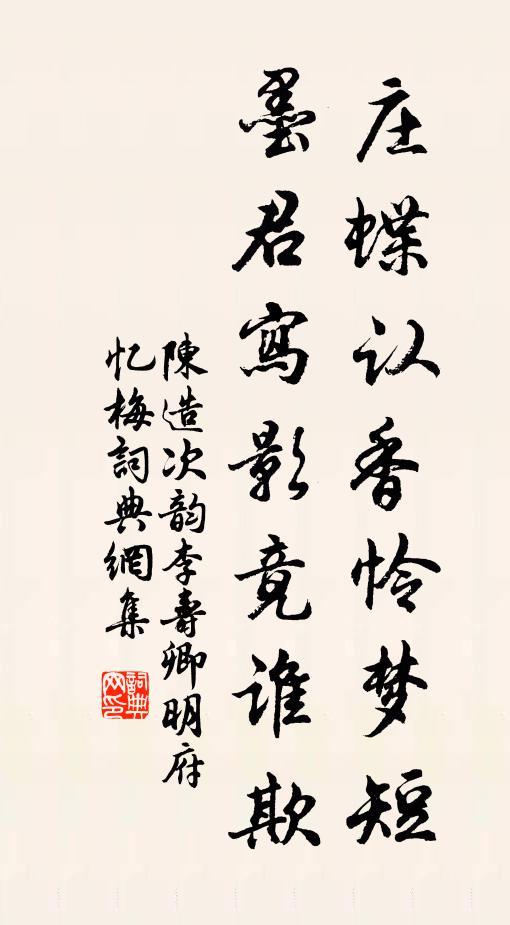 庄蝶认香怜梦短
墨君寫影竟谁欺
陳造次韵李壽卿明府
忆梅詞典網集
詞典网印